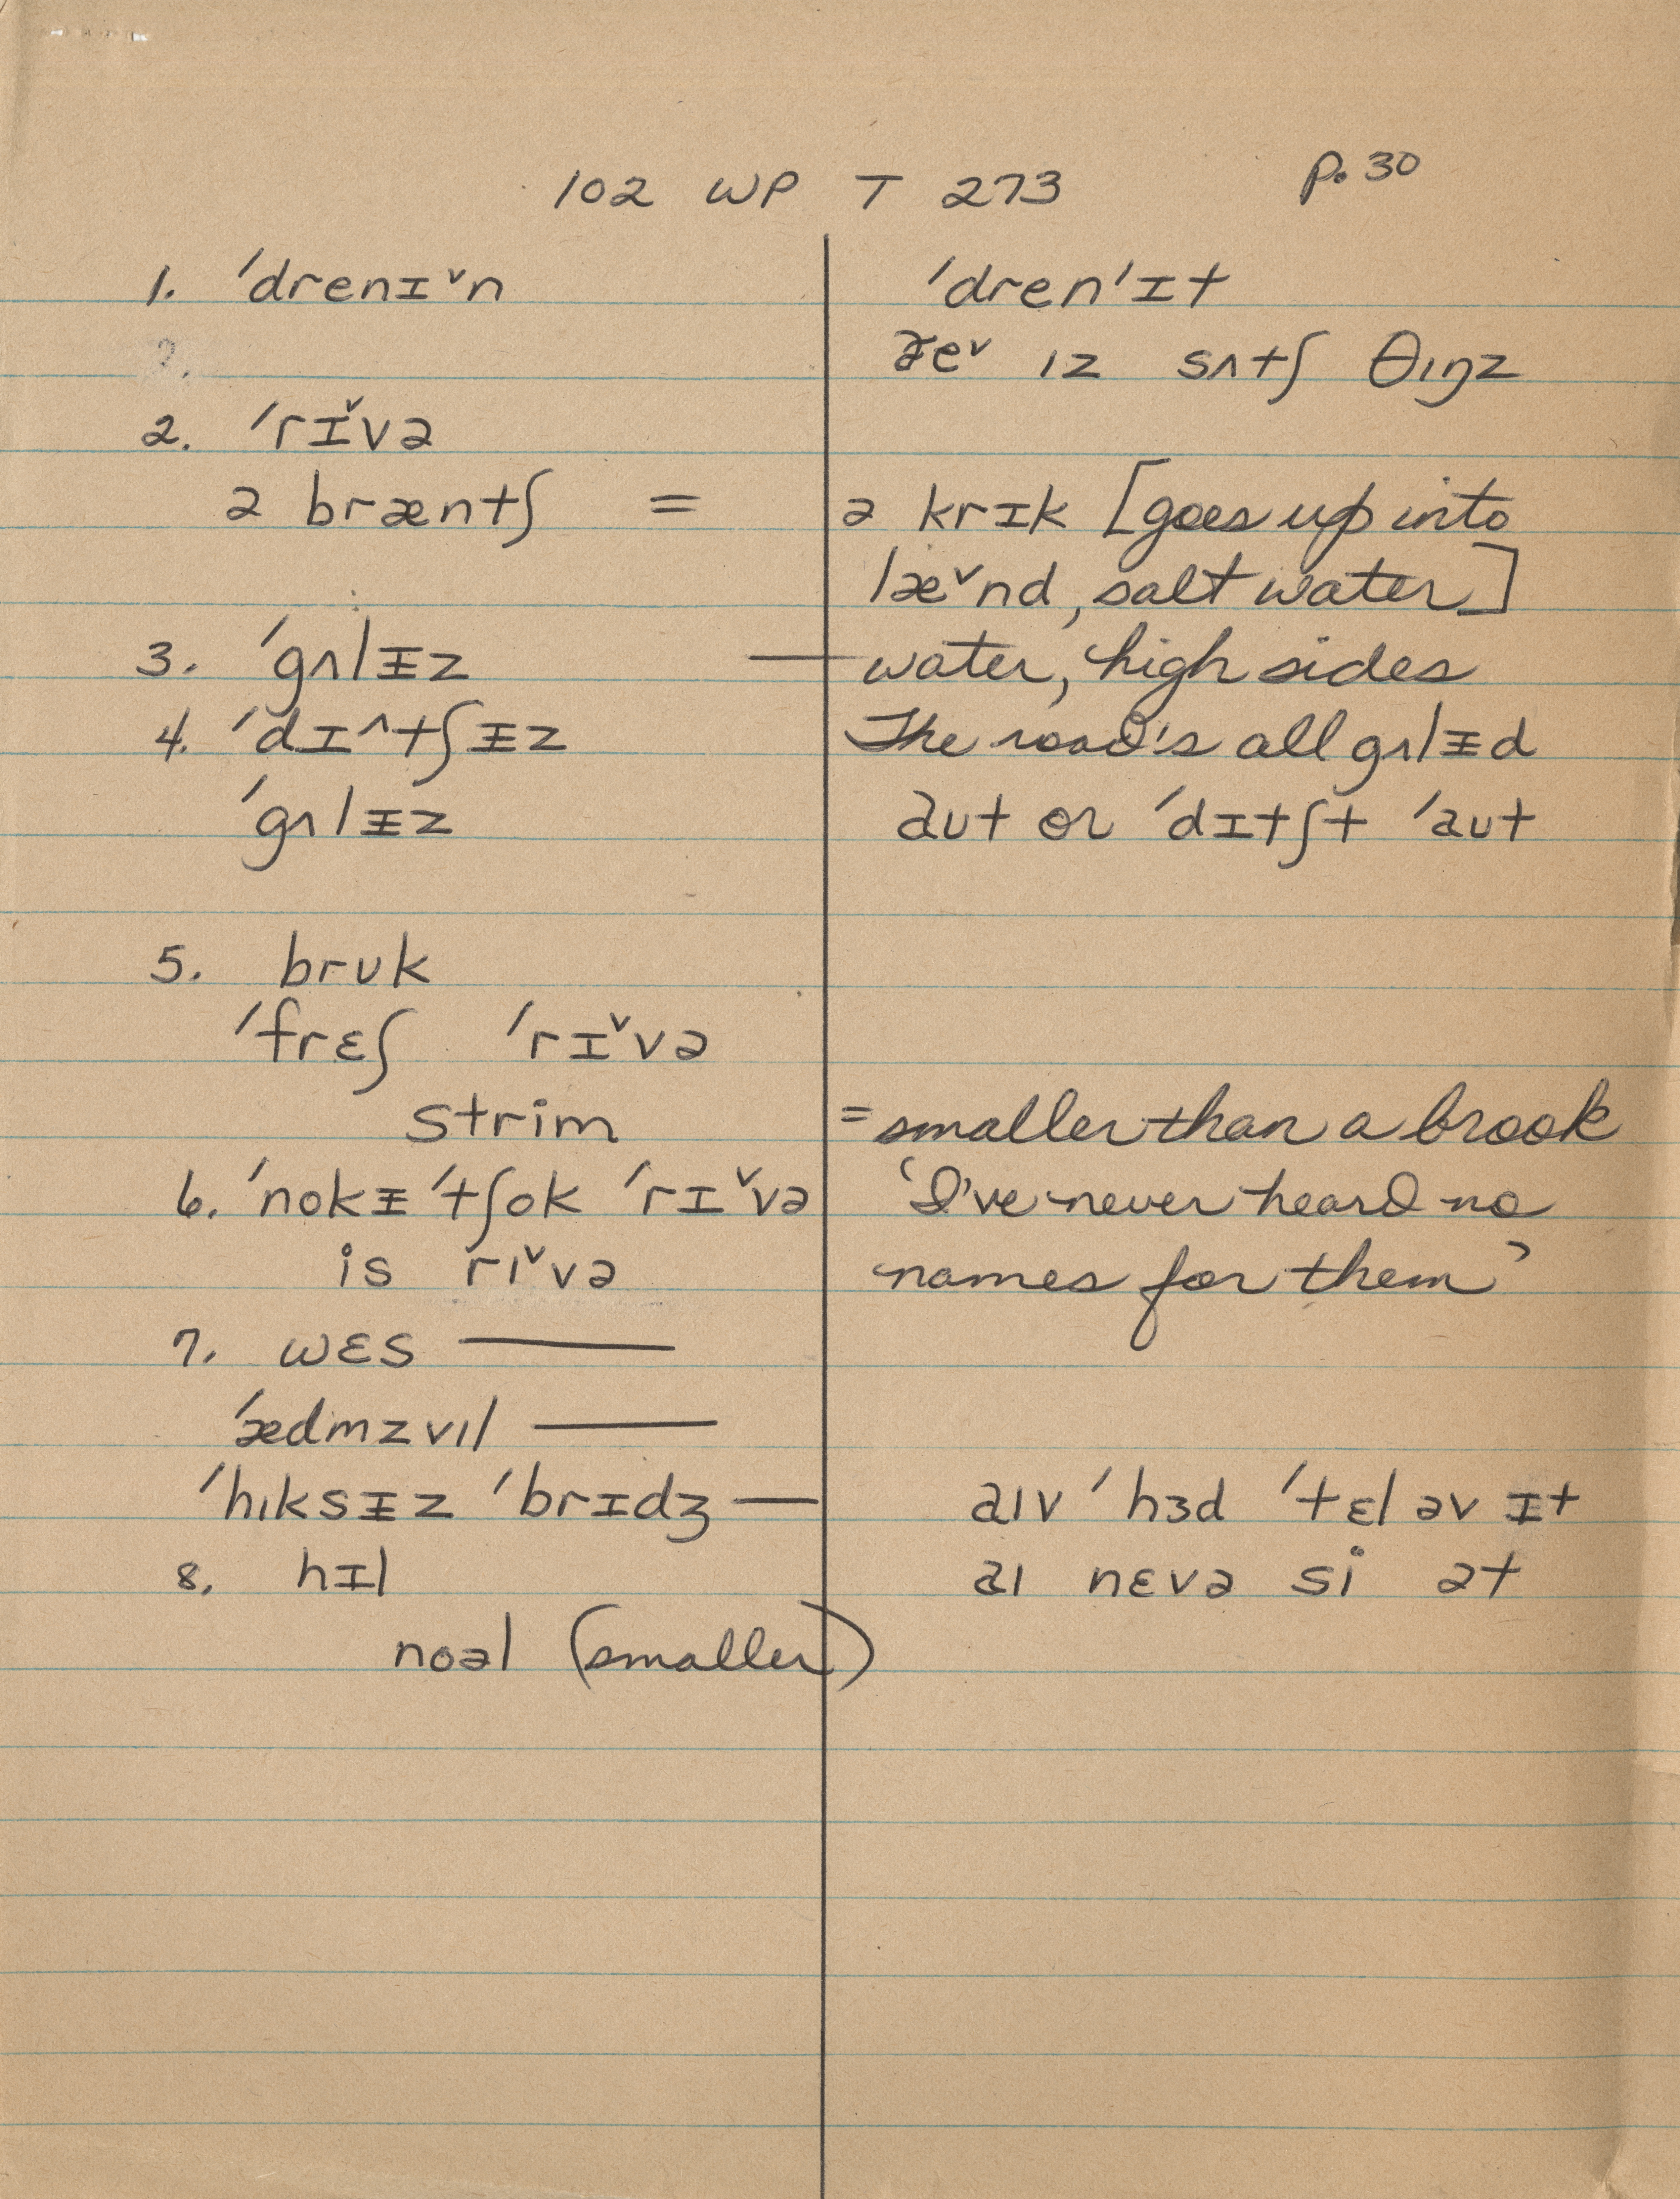 102 WP T 273 p. 30
1. ˈdrenɪˇn ˈdrenˈɪt
ðeˇ ɪz sʌtʃ θɪŋz
2. ˈrɪˇvə
ə bræntʃ = ə krɪk [goes up into
læˇnd, salt water]
3. ˈgʌlᵻz — water, high sides
4. ˈdɪ^tʃᵻz The road's all gʌlᵻd
ˈgʌlᵻz aʊt or ˈdɪtʃt ˈaʊt
5. brʊk
ˈfrɛʃ ˈrɪˇvə
strim = smaller than a brook
6. ˈnokᵻ ˈtʃok ˈrɪˇvə 'I've never heard no
is rɪˇvə names for them'
7. wɛs —
ˈædmzvɪl —
ˈhɪksᵻz ˈbrɪdʒ — aɪv ˈhɜd ˈtɛl əv ɪt
8. hɪl aɪ nɛvə si ət
noəl (smaller)